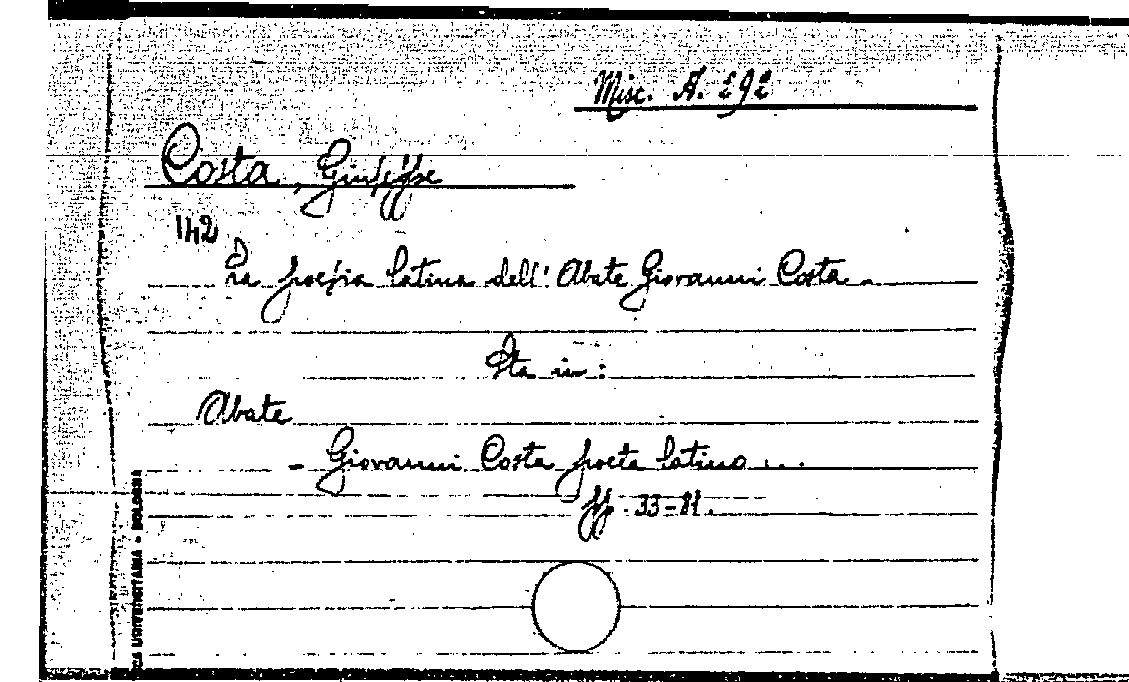 Misc. A. 292
Costa, Giuseppe
142
La poesia latina dell' Abate Giovanni Costa.
Sta in:
Abate
- Giovanni Costa poeta latino ...
pp. 33-81.
UNIVERSITARIA - BOLOGNA